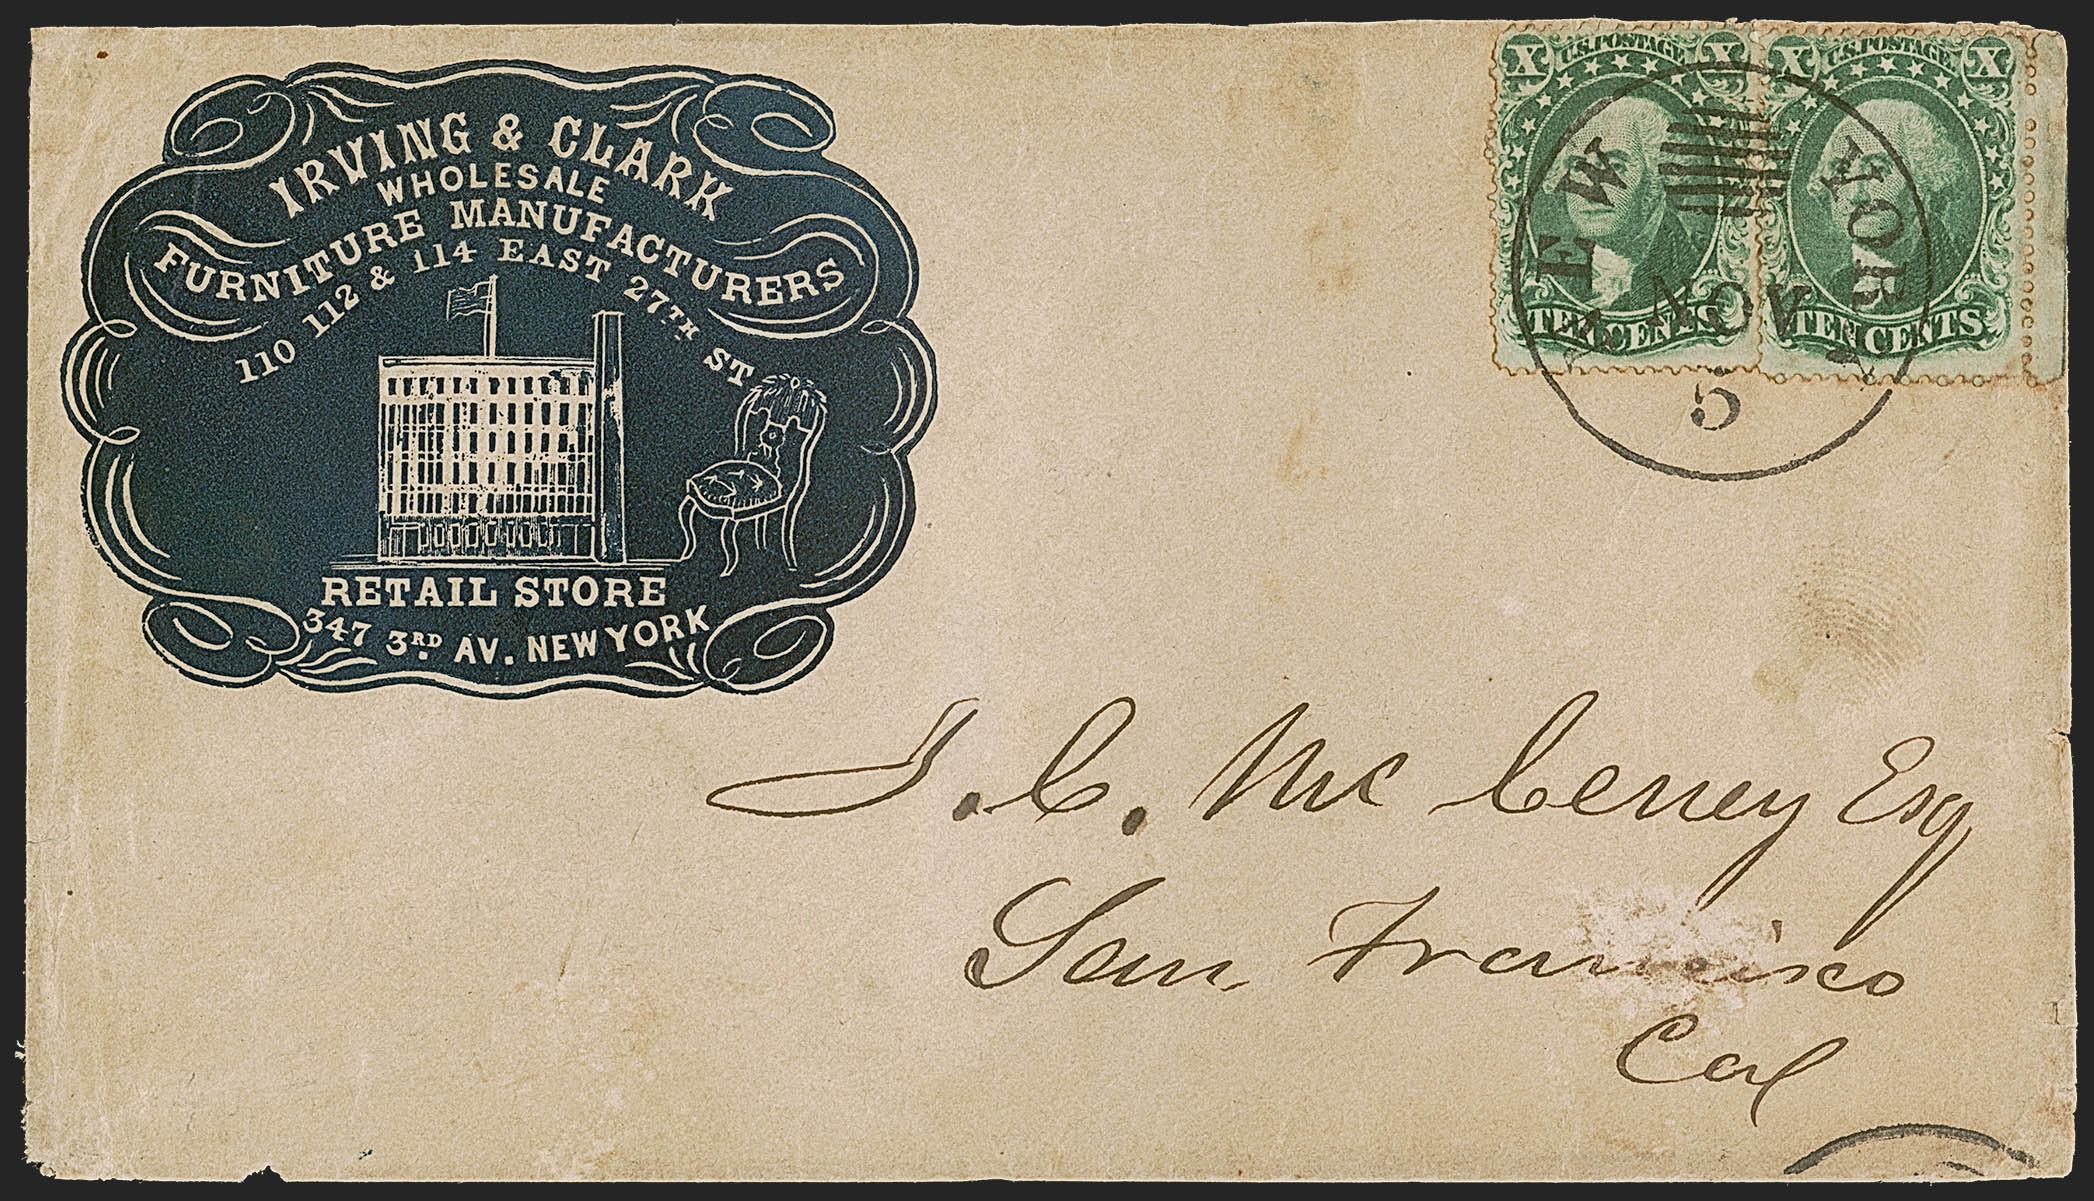 IRVING & CLARK
WHOLESALE
FURNITURE MANUFACTURERS
110 112 & 114 EAST 27TH ST
RETAIL STORE
347 3RD AV. NEW YORK
X U.S. POSTAGE X
TEN CENTS
X U.S. POSTAGE X
TEN CENTS
NEW YORK
NOV
5
J. C. Mc Ceney Esq
San Francisco
Cal